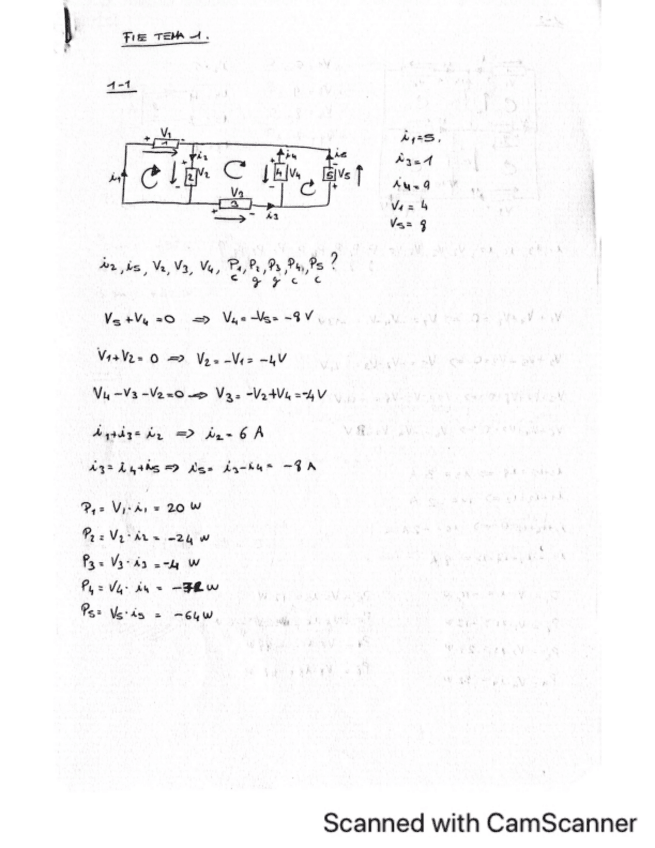 FIE TEMA 1.
1-1
+ V1 -
1
i1
i2
+
2
V2
-
V3
+ 3 -
i3
i4
-
4
V4
+
i5
-
5
V5
+
i1=5,
i3=1
i4=9
V1=4
V5=8
i2, i5, V2, V3, V4, P1, P2, P3, P4, P5?
c g g c c
V5+V4=0 ⇒ V4=-V5=-8V
V1+V2=0 ⇒ V2=-V1=-4V
V4-V3-V2=0 ⇒ V3=-V2+V4=-4V
i1+i3=i2 ⇒ i2=6 A
i3=i4+i5 ⇒ i5=i3-i4=-8 A
P1=V1·i1=20 W
P2=V2·i2=-24 W
P3=V3·i3=-4 W
P4=V4·i4=-72 W
P5=V5·i5=-64 W
Scanned with CamScanner